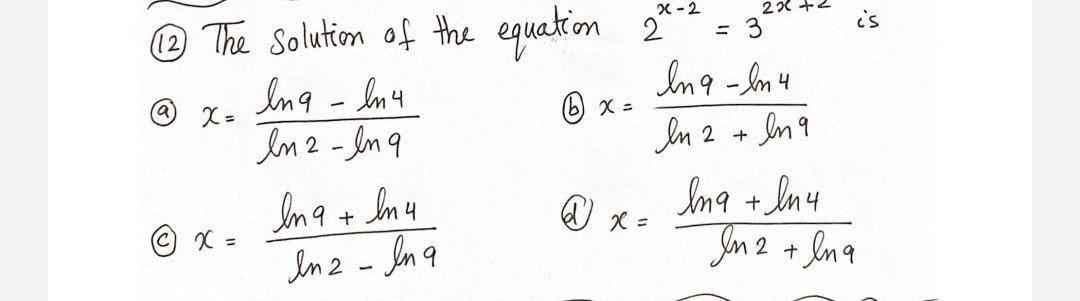 (12) The Solution of the equation 2^(x-2) = 3^(2x+2) is
(a) x = (ln 9 - ln 4) / (ln 2 - ln 9) (b) x = (ln 9 - ln 4) / (ln 2 + ln 9)
(c) x = (ln 9 + ln 4) / (ln 2 - ln 9) (d) x = (ln 9 + ln 4) / (ln 2 + ln 9)